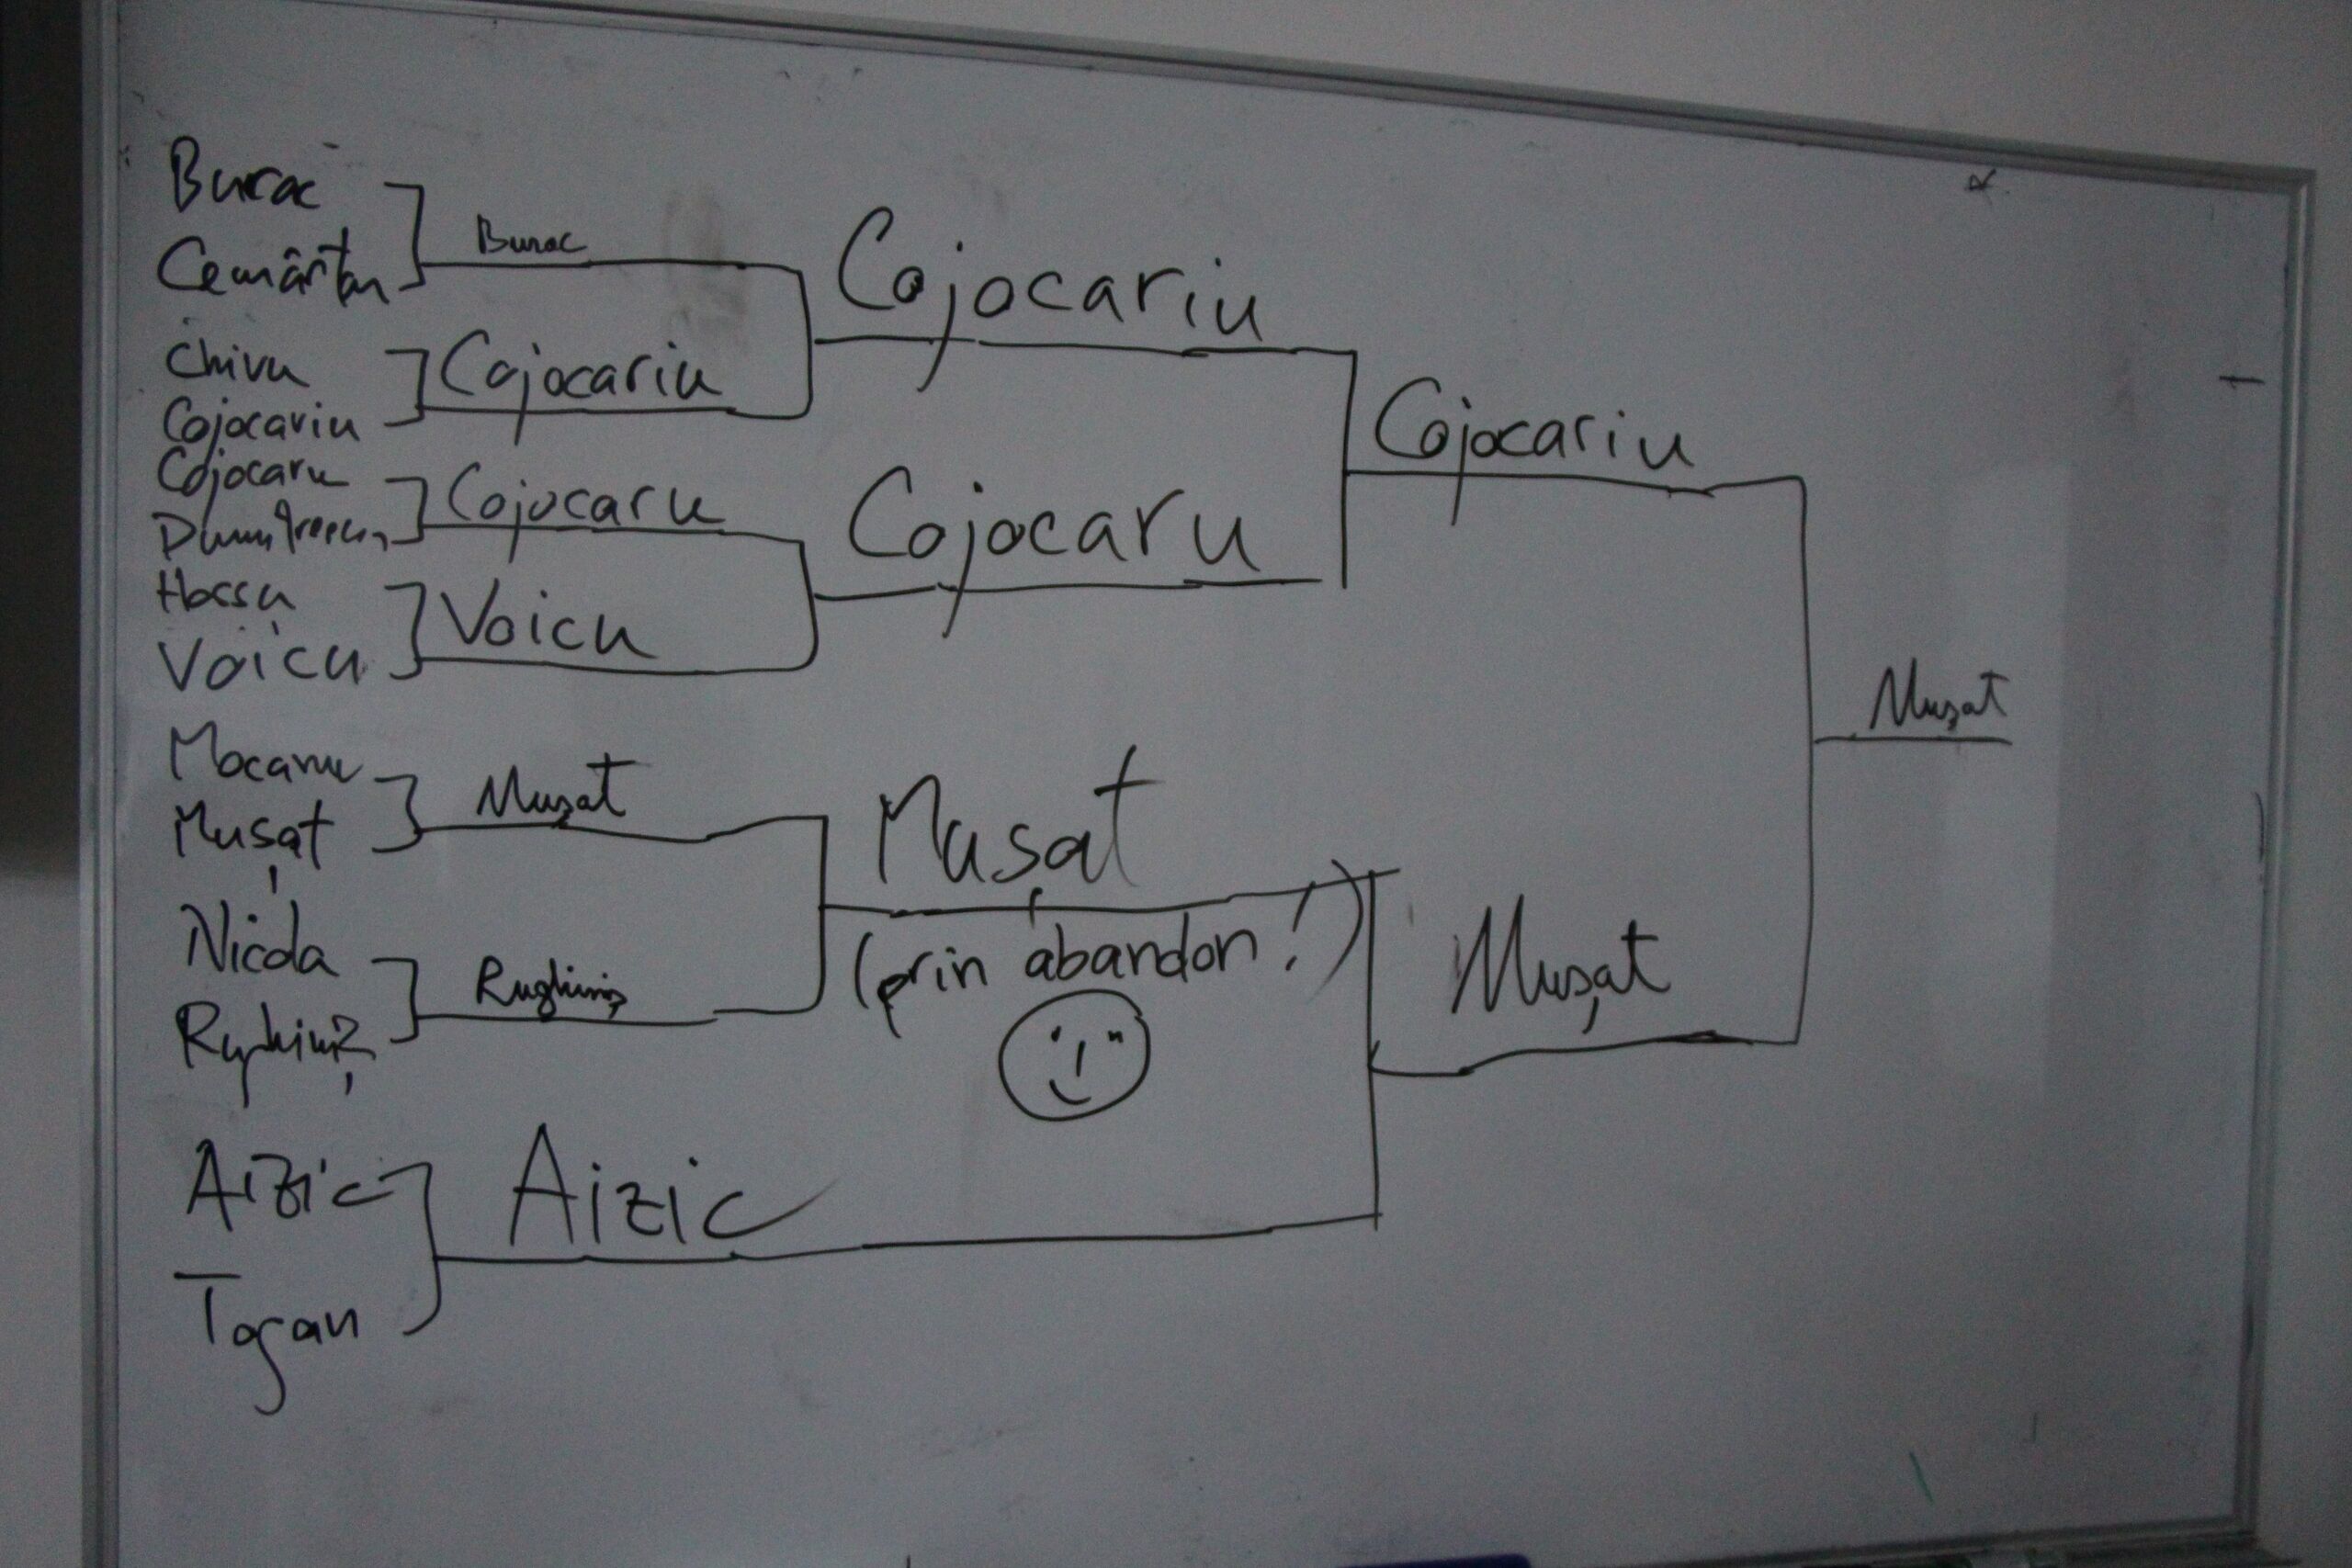 Burac
Cemârtan
Chivu
Cojocariu
Cojocaru
Dumitrescu
Hossu
Voicu
Mocanu
Mușat
Nicola
Rughiniș
Aizic
Togan
Burac
Cojocariu
Cojocaru
Voicu
Mușat
Rughiniș
Aizic
Cojocariu
Cojocaru
Mușat
(prin abandon!)
Cojocariu
Mușat
Mușat